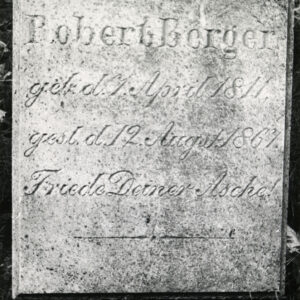 Robert Berger
geb. d. 7. April 1811.
gest. d. 12. August 1867.
Friede Deiner Asche!